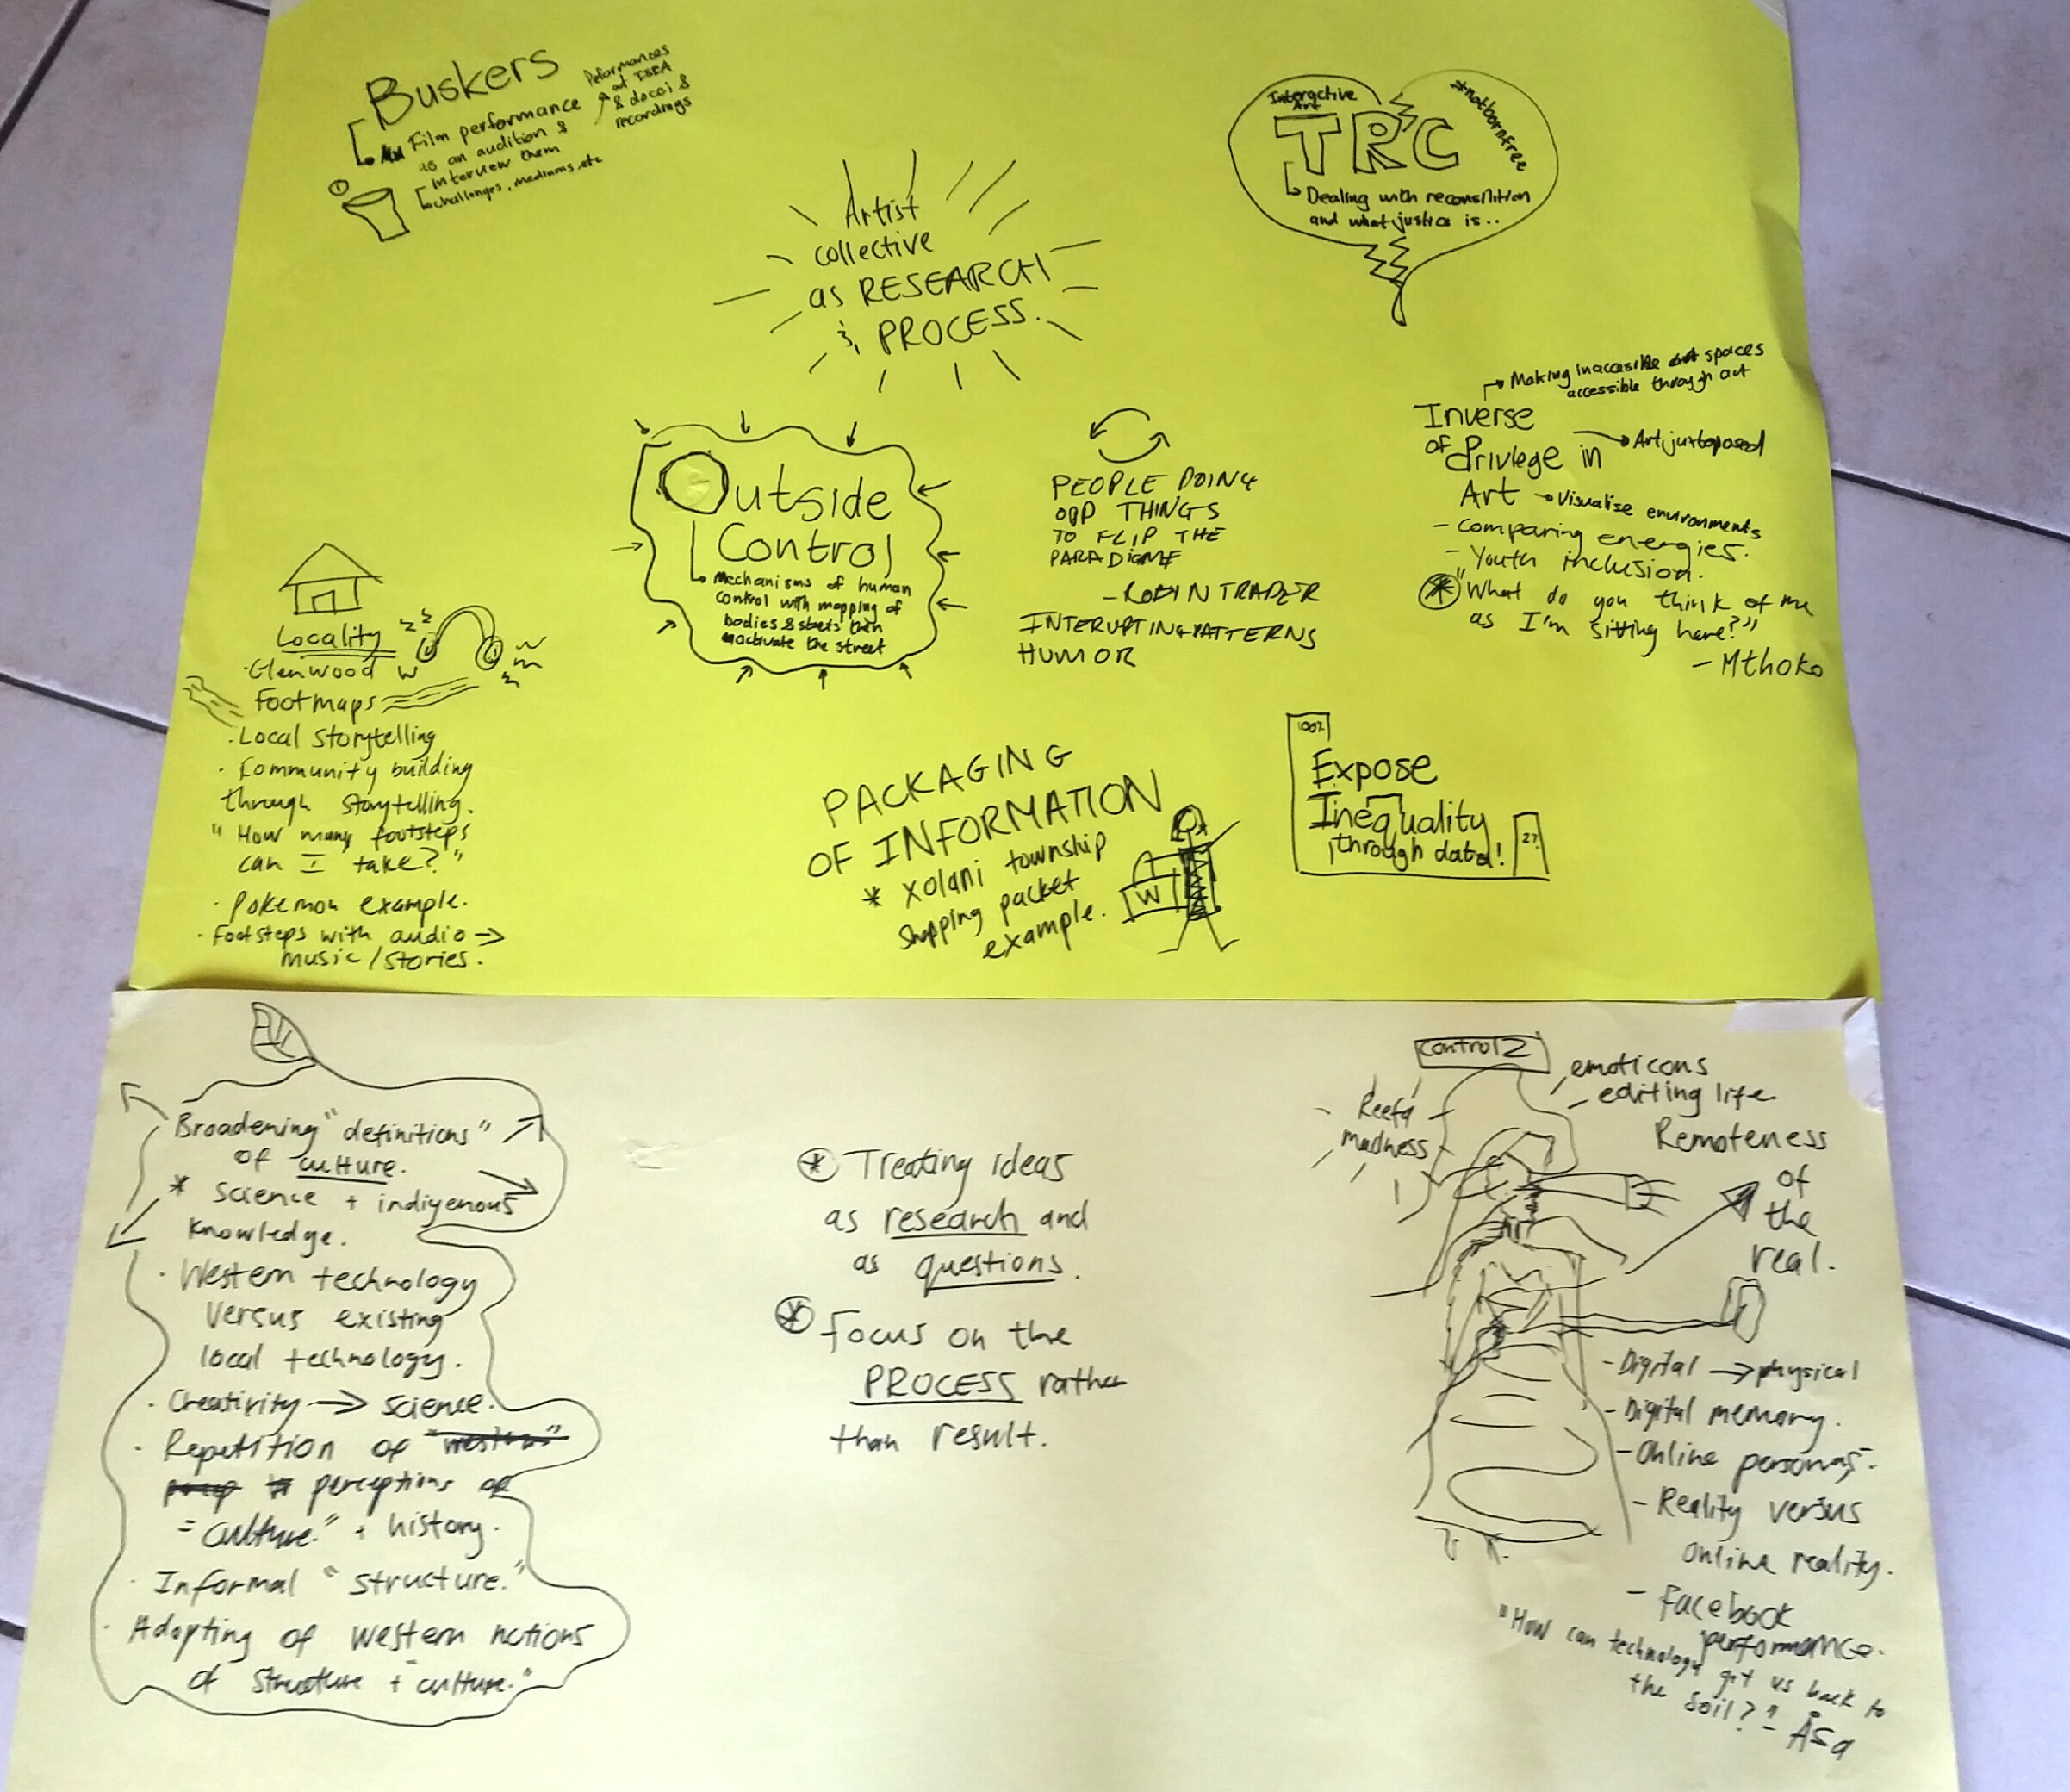 Buskers
Film performance
as an audition &
interview them
challenges, mediums, etc
Peformances
at ISEA
& docci &
recordings
Artist
collective
as RESEARCH
& PROCESS.
Interactive
Art
#notbornfree
TRC
Dealing with reconsilition
and what justice is..
Making inaccesible spaces
accessible through art
Inverse
of Privlege in
Art
Art juxtoposed
Visualise environments
- comparing energies.
- Youth inclusion.
* "What do you think of me
as I'm sitting here?"
- Mthoko
Outside
Control
Mechanisms of human
control with mapping of
bodies & steets then
activate the street
PEOPLE DOING
ODD THINGS
TO FLIP THE
PARADIGME
- ROBYN TRADER
INTERUPTING PATTERNS
HUMOR
Locality
· Glenwood
Footmaps
· Local storytelling
· Community building
through storytelling.
"How many footsteps
can I take?"
· Pokemon example.
· Footsteps with audio →
music/stories.
PACKAGING
OF INFORMATION
* Xolani township
shopping packet
example.
W
100%
Expose
Inequality
through data!
2%
Broadening "definitions"
of culture.
* science + indigenous
knowledge.
· Western technology
versus existing
local technology.
· Creativity → science.
· Repetition of "western"
perceptions of
= culture." + history.
· Informal "structure."
· Adopting of western notions
of structure + "culture."
* Treating ideas
as research and
as questions.
* Focus on the
PROCESS rather
than result.
Control 2
Reefa
madness
emoticons
editing life.
Remoteness
of
the
real.
- Digital → physical
- Digital memory.
- Online personas.
- Reality versus
online reality.
- Facebook
performance.
"How can technology get us back to
the soil?" - Åsa